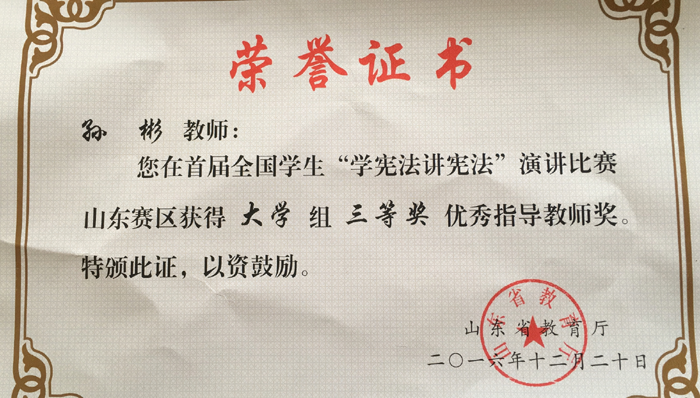 荣誉证书
孙 彬 教师：
您在首届全国学生“学宪法讲宪法”演讲比赛
山东赛区获得 大学 组 三等奖 优秀指导教师奖。
特颁此证，以资鼓励。
山东省教育厅
山东省教育厅
二〇一六年十二月二十日